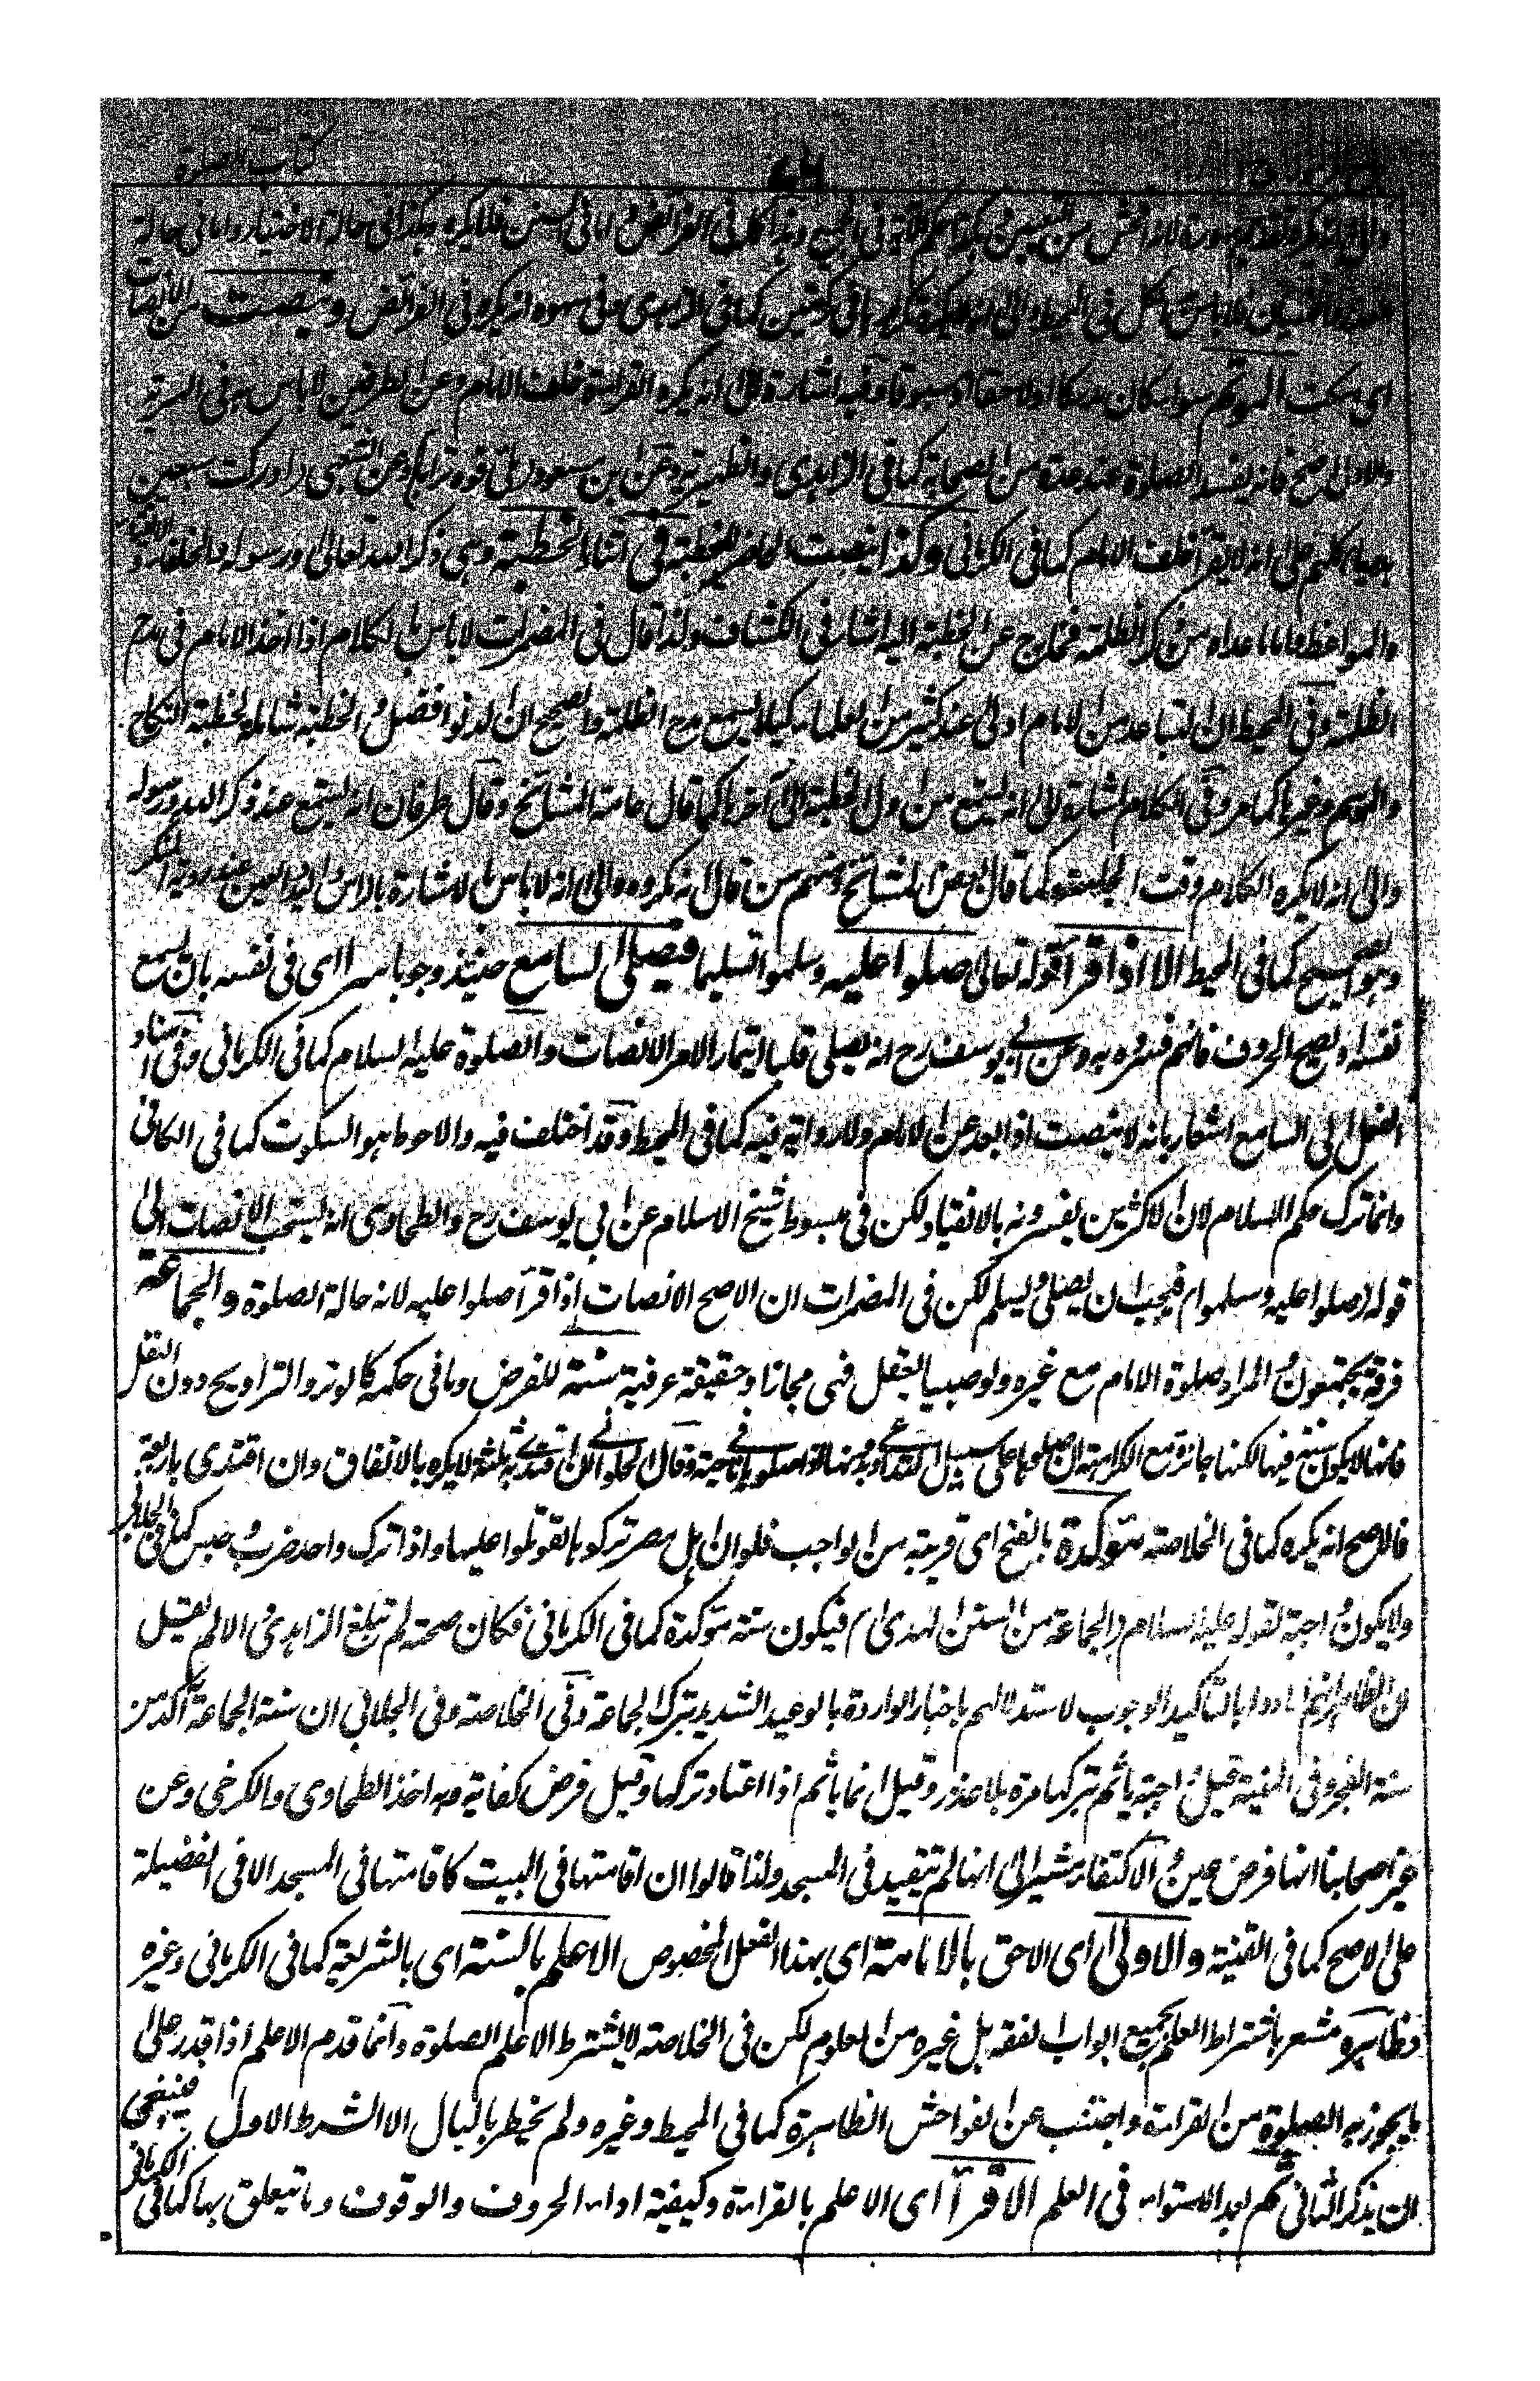 كتاب الصلوة
في الفرائض واما في السنن فلا يكره هكذا في حالة الاختيار واما في حالة
كما في الزاهدي وفي سهوه انه يكره في الفرائض وينصت من الانصات
اي يسكت المؤتم سواء كان مدركا او لاحقا او مسبوقا وفيه اشارة الى انه يكره القراءة خلف الامام وعن الطرفين لا باس به في السرية
والاول اصح فانه يفسد الصلوة عند عدة من الصحابة كما في الزاهدي والظهيرية وعن ابن مسعود رض ملئ فوه ترابا وعن الشعبي ادركت سبعين
بدريا كلهم على انه لا يقرأ خلف الامام كما في الكرماني وكذا ينصت الحاضر للخطبة في اثناء الخطبة وهي ذكر الله تعالى ورسوله والخلفاء والاتقياء
والمواعظ واما ما عداه من ذكر الظلمة فخارج عن الخطبة اليه اشار في الكشاف ولذا قال في المضمرات لا باس بالكلام اذا اخذ الامام في مدح
الظلمة وفي المحيط ان التباعد من الامام اولى عند كثير من العلماء كيلا يسمع مدح الظلمة والصحيح ان الدنو افضل والخطبة شاملة لخطبة النكاح
والموسم وغيرها كما مر وفي الكلام اشارة الى انه يستمع من اول الخطبة الى آخرها كما قال عامة المشائخ وقال طرفان انه يستمع عند ذكر الله ورسوله
والى انه لا يكره الكلام وقت الجلسة كما قال بعض المشائخ ومنهم من قال انه مكروه والى انه لا باس بالاشارة بالراس واليد والعين عند رؤية المنكر
وهو الصحيح كما في المحيط الا اذا قرأ قوله تعالى صلوا عليه وسلموا تسليما فيصلى السامع حينئذ وجوبا سرا اى في نفسه بان يسمع
نفسه او يصحح الحروف فانهم فسروه به وعن ابي يوسف رح انه يصلي قلبا ايتمارا لامر الانصات والصلوة عليه السلام كما في الكرماني وفي اسناد
الفعل الى السامع اشعار بانه لا ينصت اذا بعد عن الامام ولا رواية فيه كما في المحيط وقد اختلف فيه والاحوط هو السكوت كما في الكافي
وانما ترك حكم الاسلام لان الاكثرين يفسرونه بالانقياد لكن في مبسوط شيخ الاسلام عن ابي يوسف رح والطحاوى انه ليستحب الانصات الى
قوله (صلوا عليه وسلموا) فيجب ان يصلي ويسلم لكن في المضمرات ان الاصح الانصات اذا قرأ صلوا عليه لانه حالة الصلوة والجماعة
فرقة يجتمعون والمراد صلوة الامام مع غيره ولو صبيا يعقل فهي مجاز او حقيقة عرفية سنة للفرض وما في حكمه كالوتر والتراويح دون النفل
فانها لا يكون سنة فيها لكنها جائزة مع الكراهة ان صلوها على سبيل التداعي وقال الحلواني ان اقتدى به ثلثة لا يكره بالاتفاق وان اقتدى باربعة
فالاصح انه يكره كما في الخلاصة مؤكدة بالفتح اى قريبة من الواجب فلو ان اهل مصر تركوها قوتلوا عليها واذا ترك واحد ضرب وحبس كما في الجلابي
ولا يكون واجبة لقوله عليه السلام (الجماعة من السنن الهدى) فيكون سنة مؤكدة كما في الكرماني فكان صحته لم تبلغ الزاهدي والا لم يقل
ان الظاهر انهم ارادوا بالتاكيد الوجوب لاستدلالهم باخبار الواردة بالوعيد الشديد بترك الجماعة وفي الخلاصة وفي الجلابي ان سنة الجماعة آكد من
سنة الفجر وفي المنية قيل واجبة ياثم بتركها مرة بلا عذر وقيل انما ياثم اذا اعتاد تركها وقيل فرض كفاية وبه اخذ الطحاوى والكرخي وعن
غير اصحابنا انها فرض عين والاكتفاء مشير الى انها لم تتقيد في المسجد ولذا قالوا ان اقامتها في البيت كاقامتها في المسجد الا في الفضيلة
على الاصح كما في القنية والاولى اى الاحق بالامامة اى بهذا الفعل المخصوص الاعلم بالسنة اى بالشريعة كما في الكرماني وغيره
فظاهره مشعر باشتراط العلم بجميع ابواب الفقه بل غيره من العلوم لكن في الخلاصة لا يشترط الا علم الصلوة وانما قدم الاعلم اذا قدر على
ما يجوز به الصلوة من القراءة واجتنب عن الفواحش الظاهرة كما في المحيط وغيره ولم يخطر بالبال الا الشرط الاول فينبغي
ان يذكر الثاني ثم بعد الاستواء في العلم الاقرأ اى الاعلم بالقراءة وكيفية اداء الحروف والوقوف وما يتعلق بها كما في الكرماني